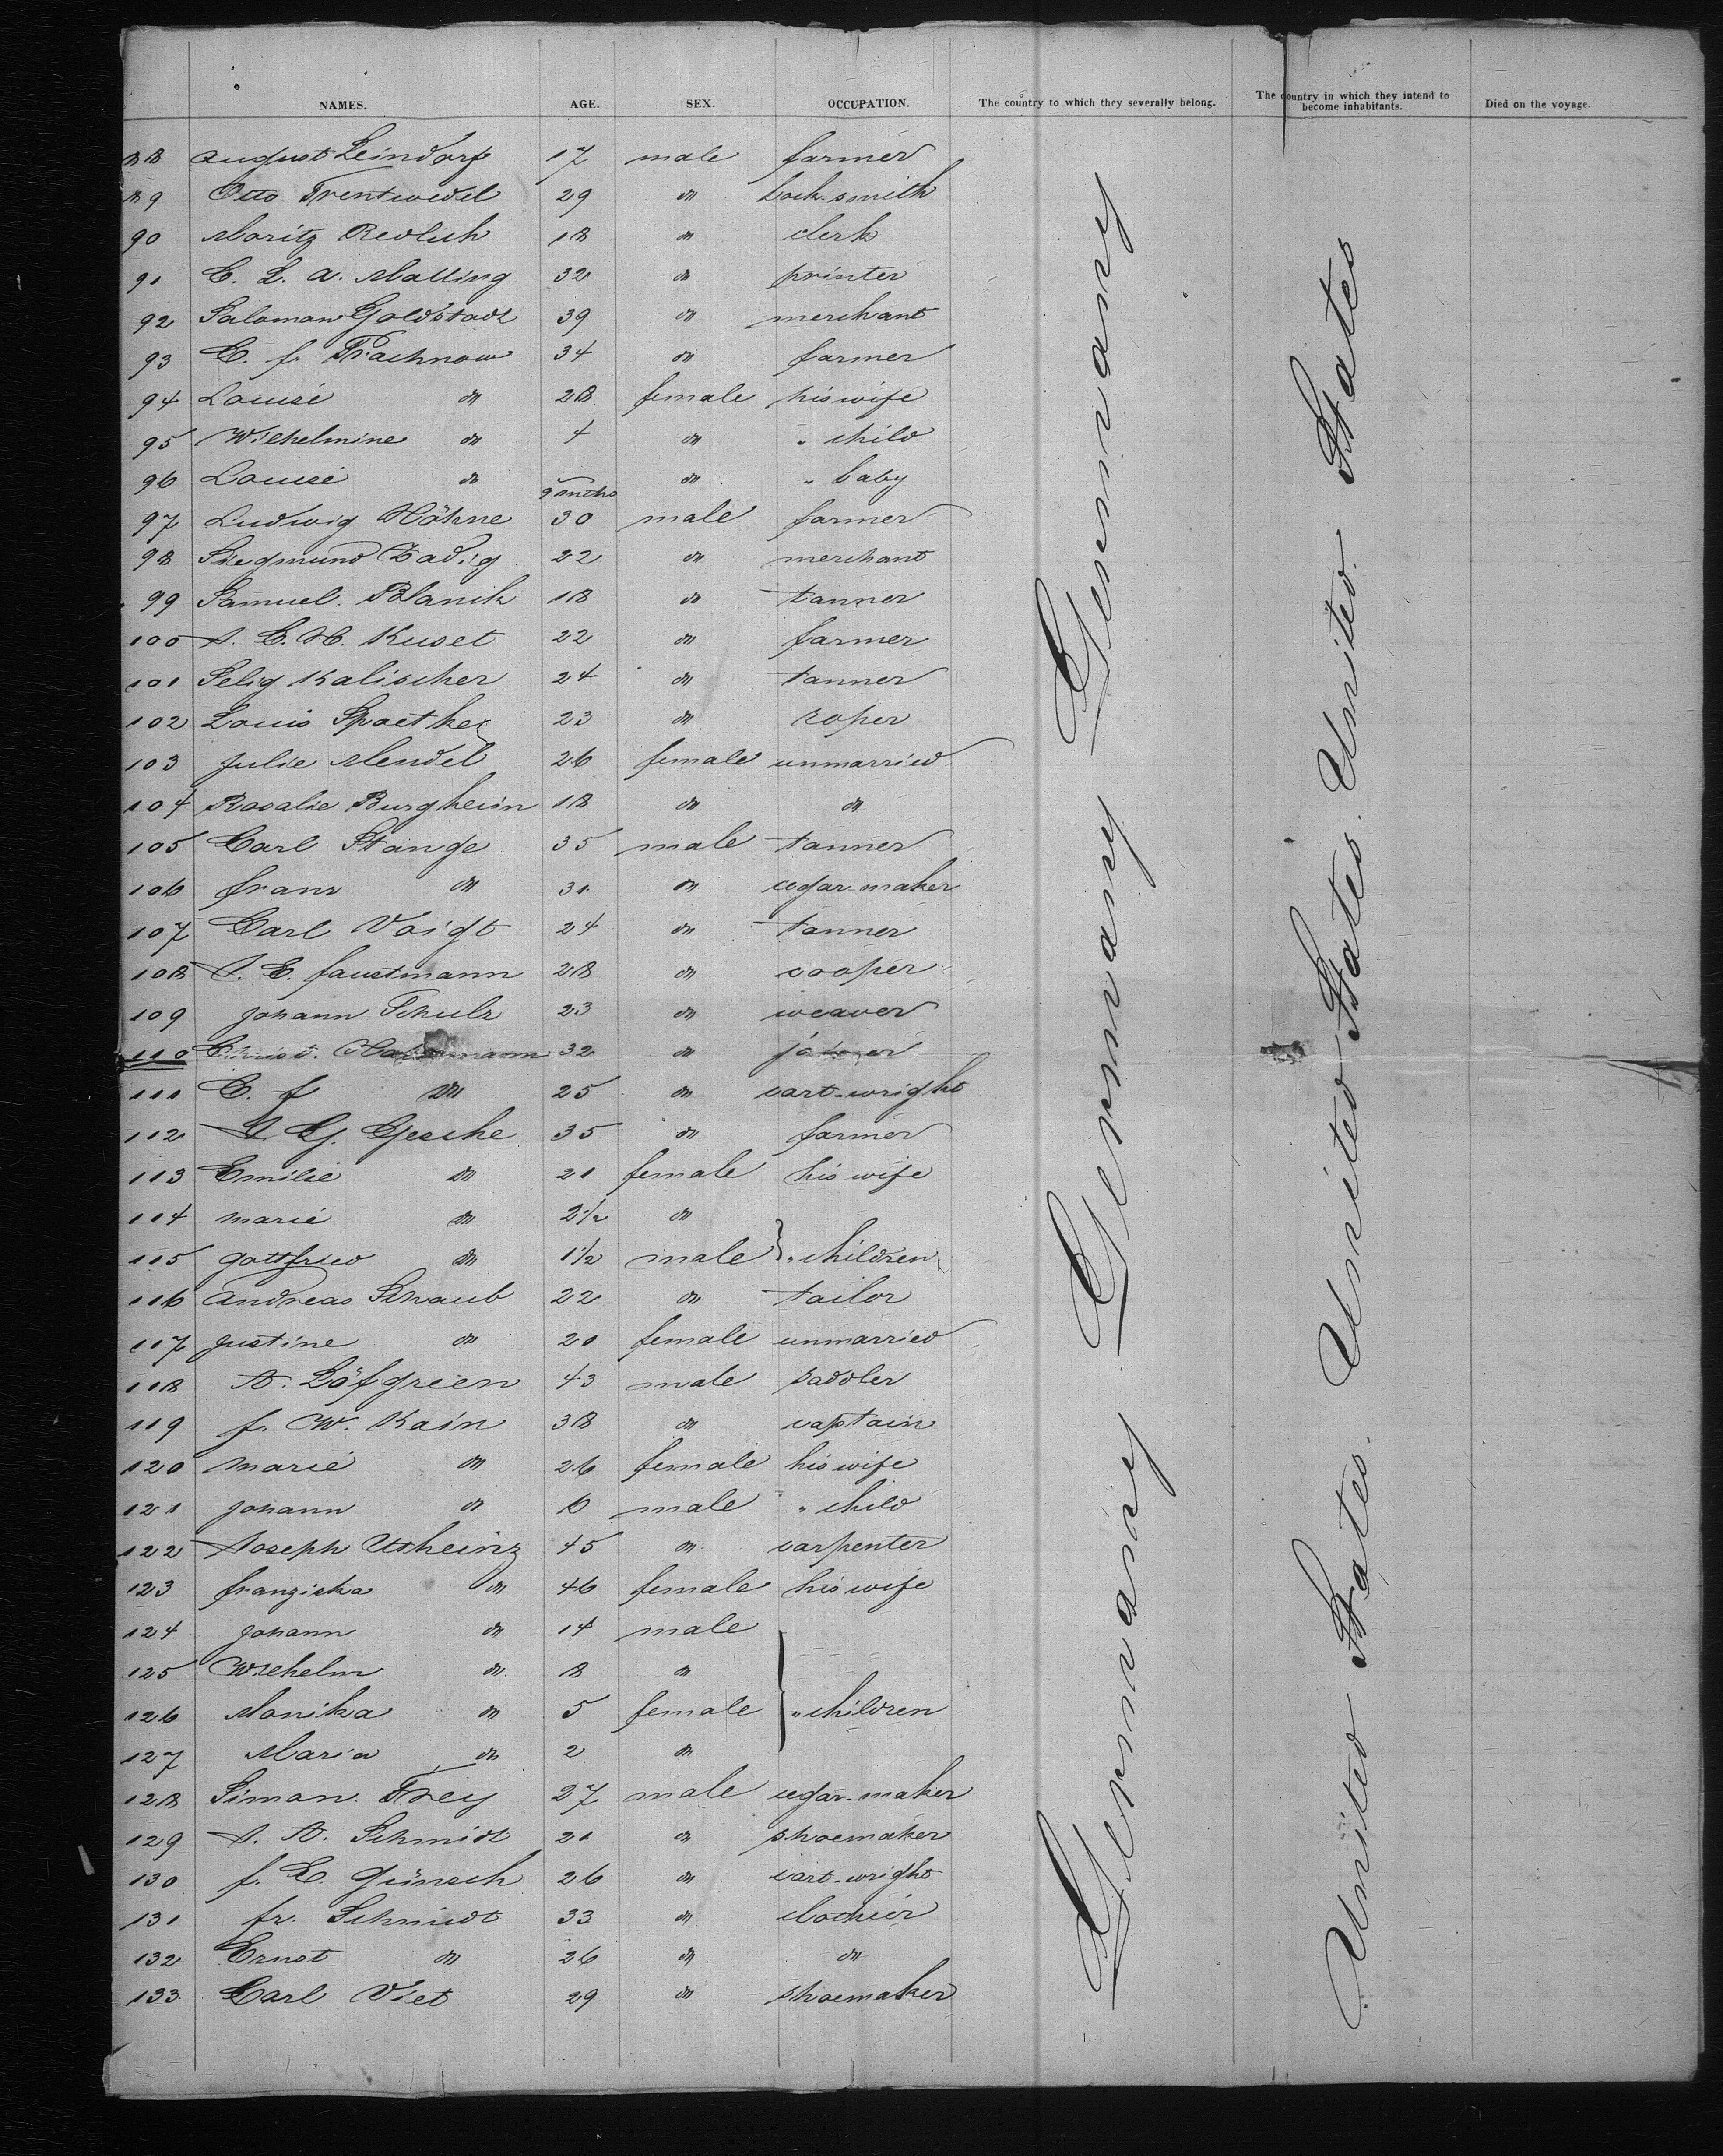 NAMES. AGE. SEX. OCCUPATION. The country to which they severally belong. The country in which they intend to become inhabitants. Died on the voyage.
88 August Leindorf 17 male farmer
89 Otto Trentwedel 29 do lock-smith
90 Moritz Redlich 18 do clerk
91 C. L. A. Malling 32 do printer
92 Salomon Goldstadt 39 do merchant
93 C. F. Prachnow 34 do farmer
94 Louise do 28 female his wife
95 Wilhelmine do 4 do " child
96 Louise do 9 mths do " baby
97 Ludwig Höhne 30 male farmer
98 Siegmund Zadig 22 do merchant
99 Samuel Blanck 18 do tanner
100 A. C. H. Kuset 22 do farmer
101 Selig Kalischer 24 do tanner
102 Louis Spaether 23 do roper
103 Julie Mendel 26 female unmarried
104 Rosalie Burgheim 18 do do
105 Carl Stange 35 male tanner
106 Franz do 31 do cigar-maker
107 Carl Voigt 24 do tanner
108 A. E. Faustmann 28 do cooper
109 Johann Schulz 23 do weaver
110 Christ. 32 do
111 C. F. do 25 do cart-wright
112 A. G. Gesche 35 do farmer
113 Emilie do 21 female his wife
114 Marie do 2 1/2 do
115 Gottfried do 1 1/2 male " children
116 Andreas Schaub 22 do tailor
117 Justine do 20 female unmarried
118 A. Löfgreen 43 male saddler
119 F. W. Kain 38 do captain
120 Marie do 26 female his wife
121 Johann do 6 male " child
122 Joseph Utheinz 45 do carpenter
123 Franziska do 46 female his wife
124 Johann do 14 male
125 Wilhelm do 8 do
126 Monika do 5 female " children
127 Maria do 2 do
128 Simon Frey 27 male cigar-maker
129 A. A. Schmidt 21 do shoemaker
130 F. C. Günsch 26 do cart-wright
131 Fr. Schmidt 33 do clothier
132 Ernst do 26 do do
133 Carl Viet 29 do shoemaker
Germany Germany Germany Germany
United States. United States. United States